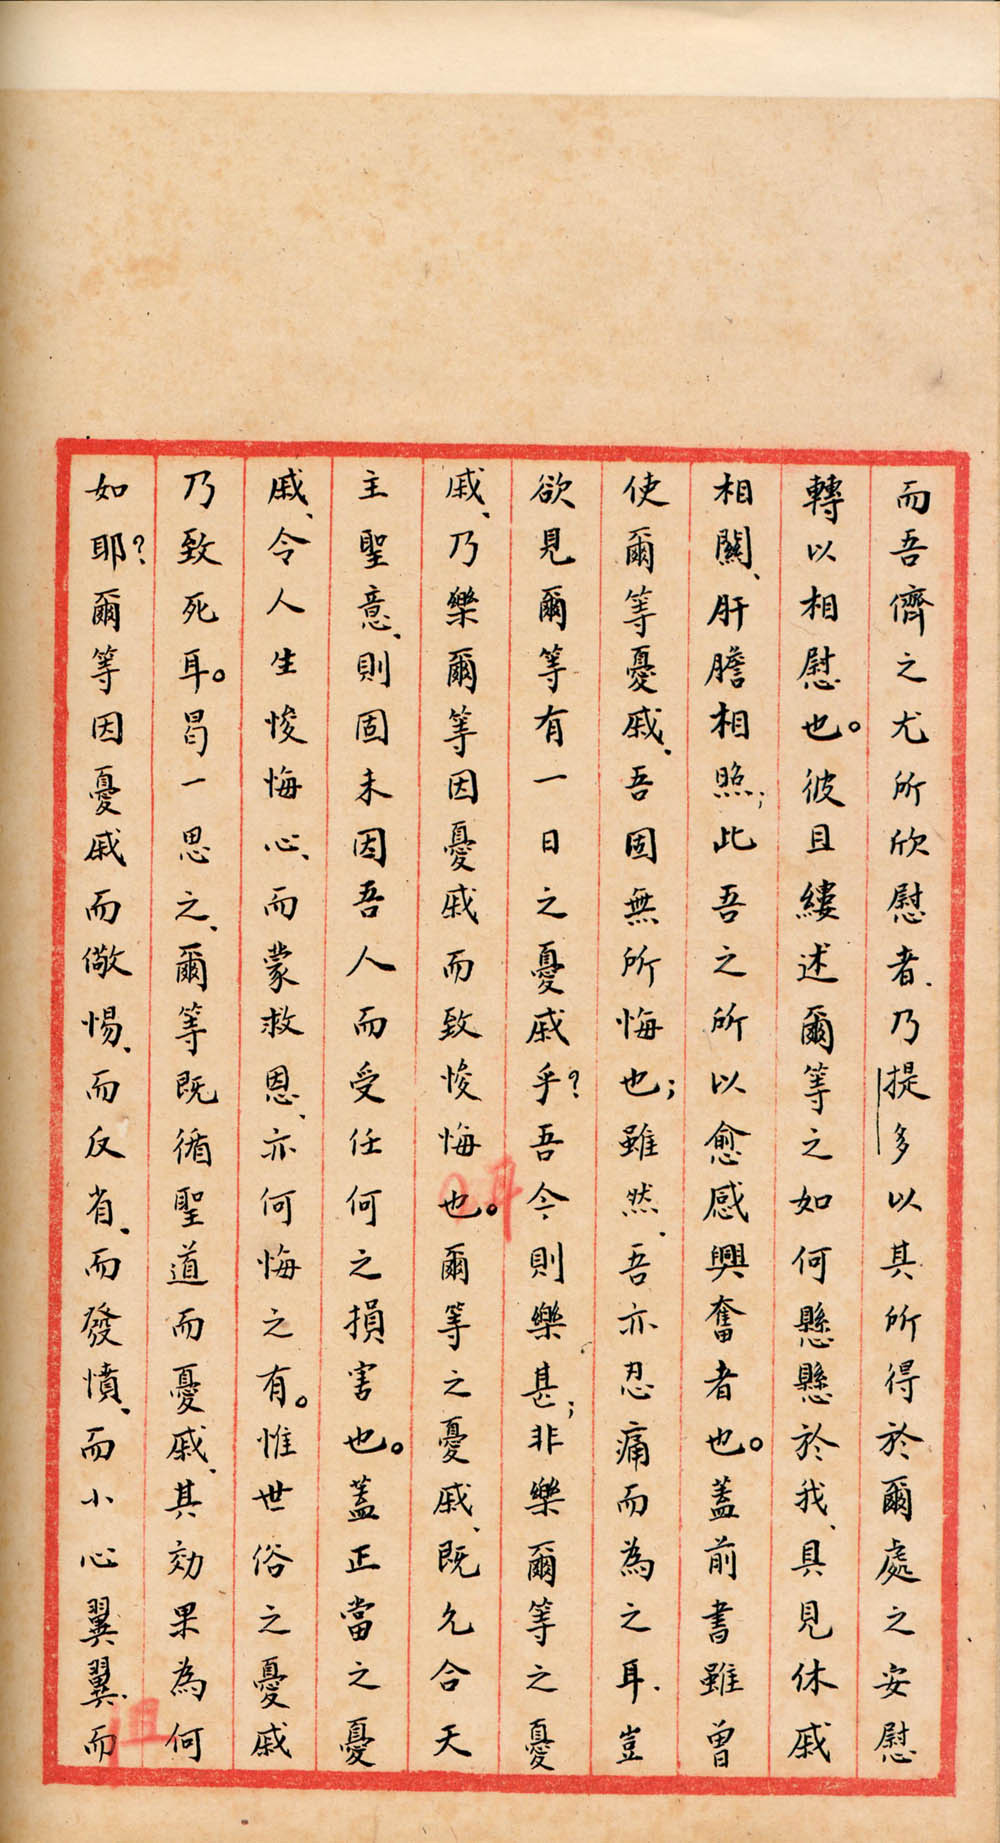 而吾儕之尤所欣慰者、乃提多以其所得於爾處之安慰
轉以相慰也。彼且縷述爾等之如何懸懸於我、具見休戚
相關、肝膽相照；此吾之所以愈感興奮者也。蓋前書雖曾
使爾等憂戚、吾固無所悔也；雖然、吾亦忍痛而為之耳、豈
欲見爾等有一日之憂戚乎？吾今則樂甚；非樂爾等之憂
戚、乃樂爾等因憂戚而致悛悔也。爾等之憂戚、既允合天
主聖意、則固未因吾人而受任何之損害也。蓋正當之憂
戚、令人生悛悔心、而蒙救恩、亦何悔之有。惟世俗之憂戚
乃致死耳。曷一思之、爾等既循聖道而憂戚、其効果為何
如耶？爾等因憂戚而儆惕、而反省、而發憤、而小心翼翼、而